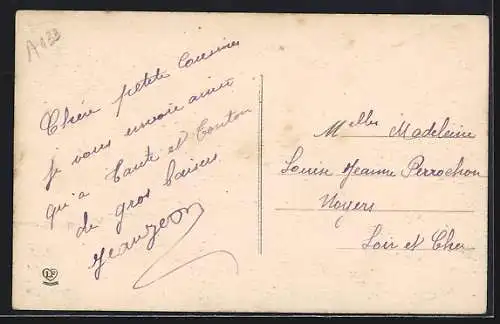 A 133
Chère petite cousine
je vous envoie ainsi
qu'a tante et tonton
de gros baisers
Jeanzeon
Melles Madeleine
Louise Jeanne Perrochon
Noyers
Loir et Cher
LF